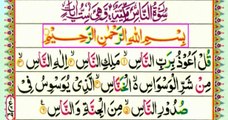 سُوْرَةُ النَّاسِ مَكِّيَّةٌ
بِسْمِ اللهِ الرَّحْمٰنِ الرَّحِيْمِ
قُلْ اَعُوْذُ بِرَبِّ النَّاسِ مَلِكِ النَّاسِ اِلٰهِ النَّاسِ
مِنْ شَرِّ الْوَسْوَاسِ الْخَنَّاسِ الَّذِیْ یُوَسْوِسُ فِیْ
صُدُوْرِ النَّاسِ مِنَ الْجِنَّةِ وَ النَّاسِ